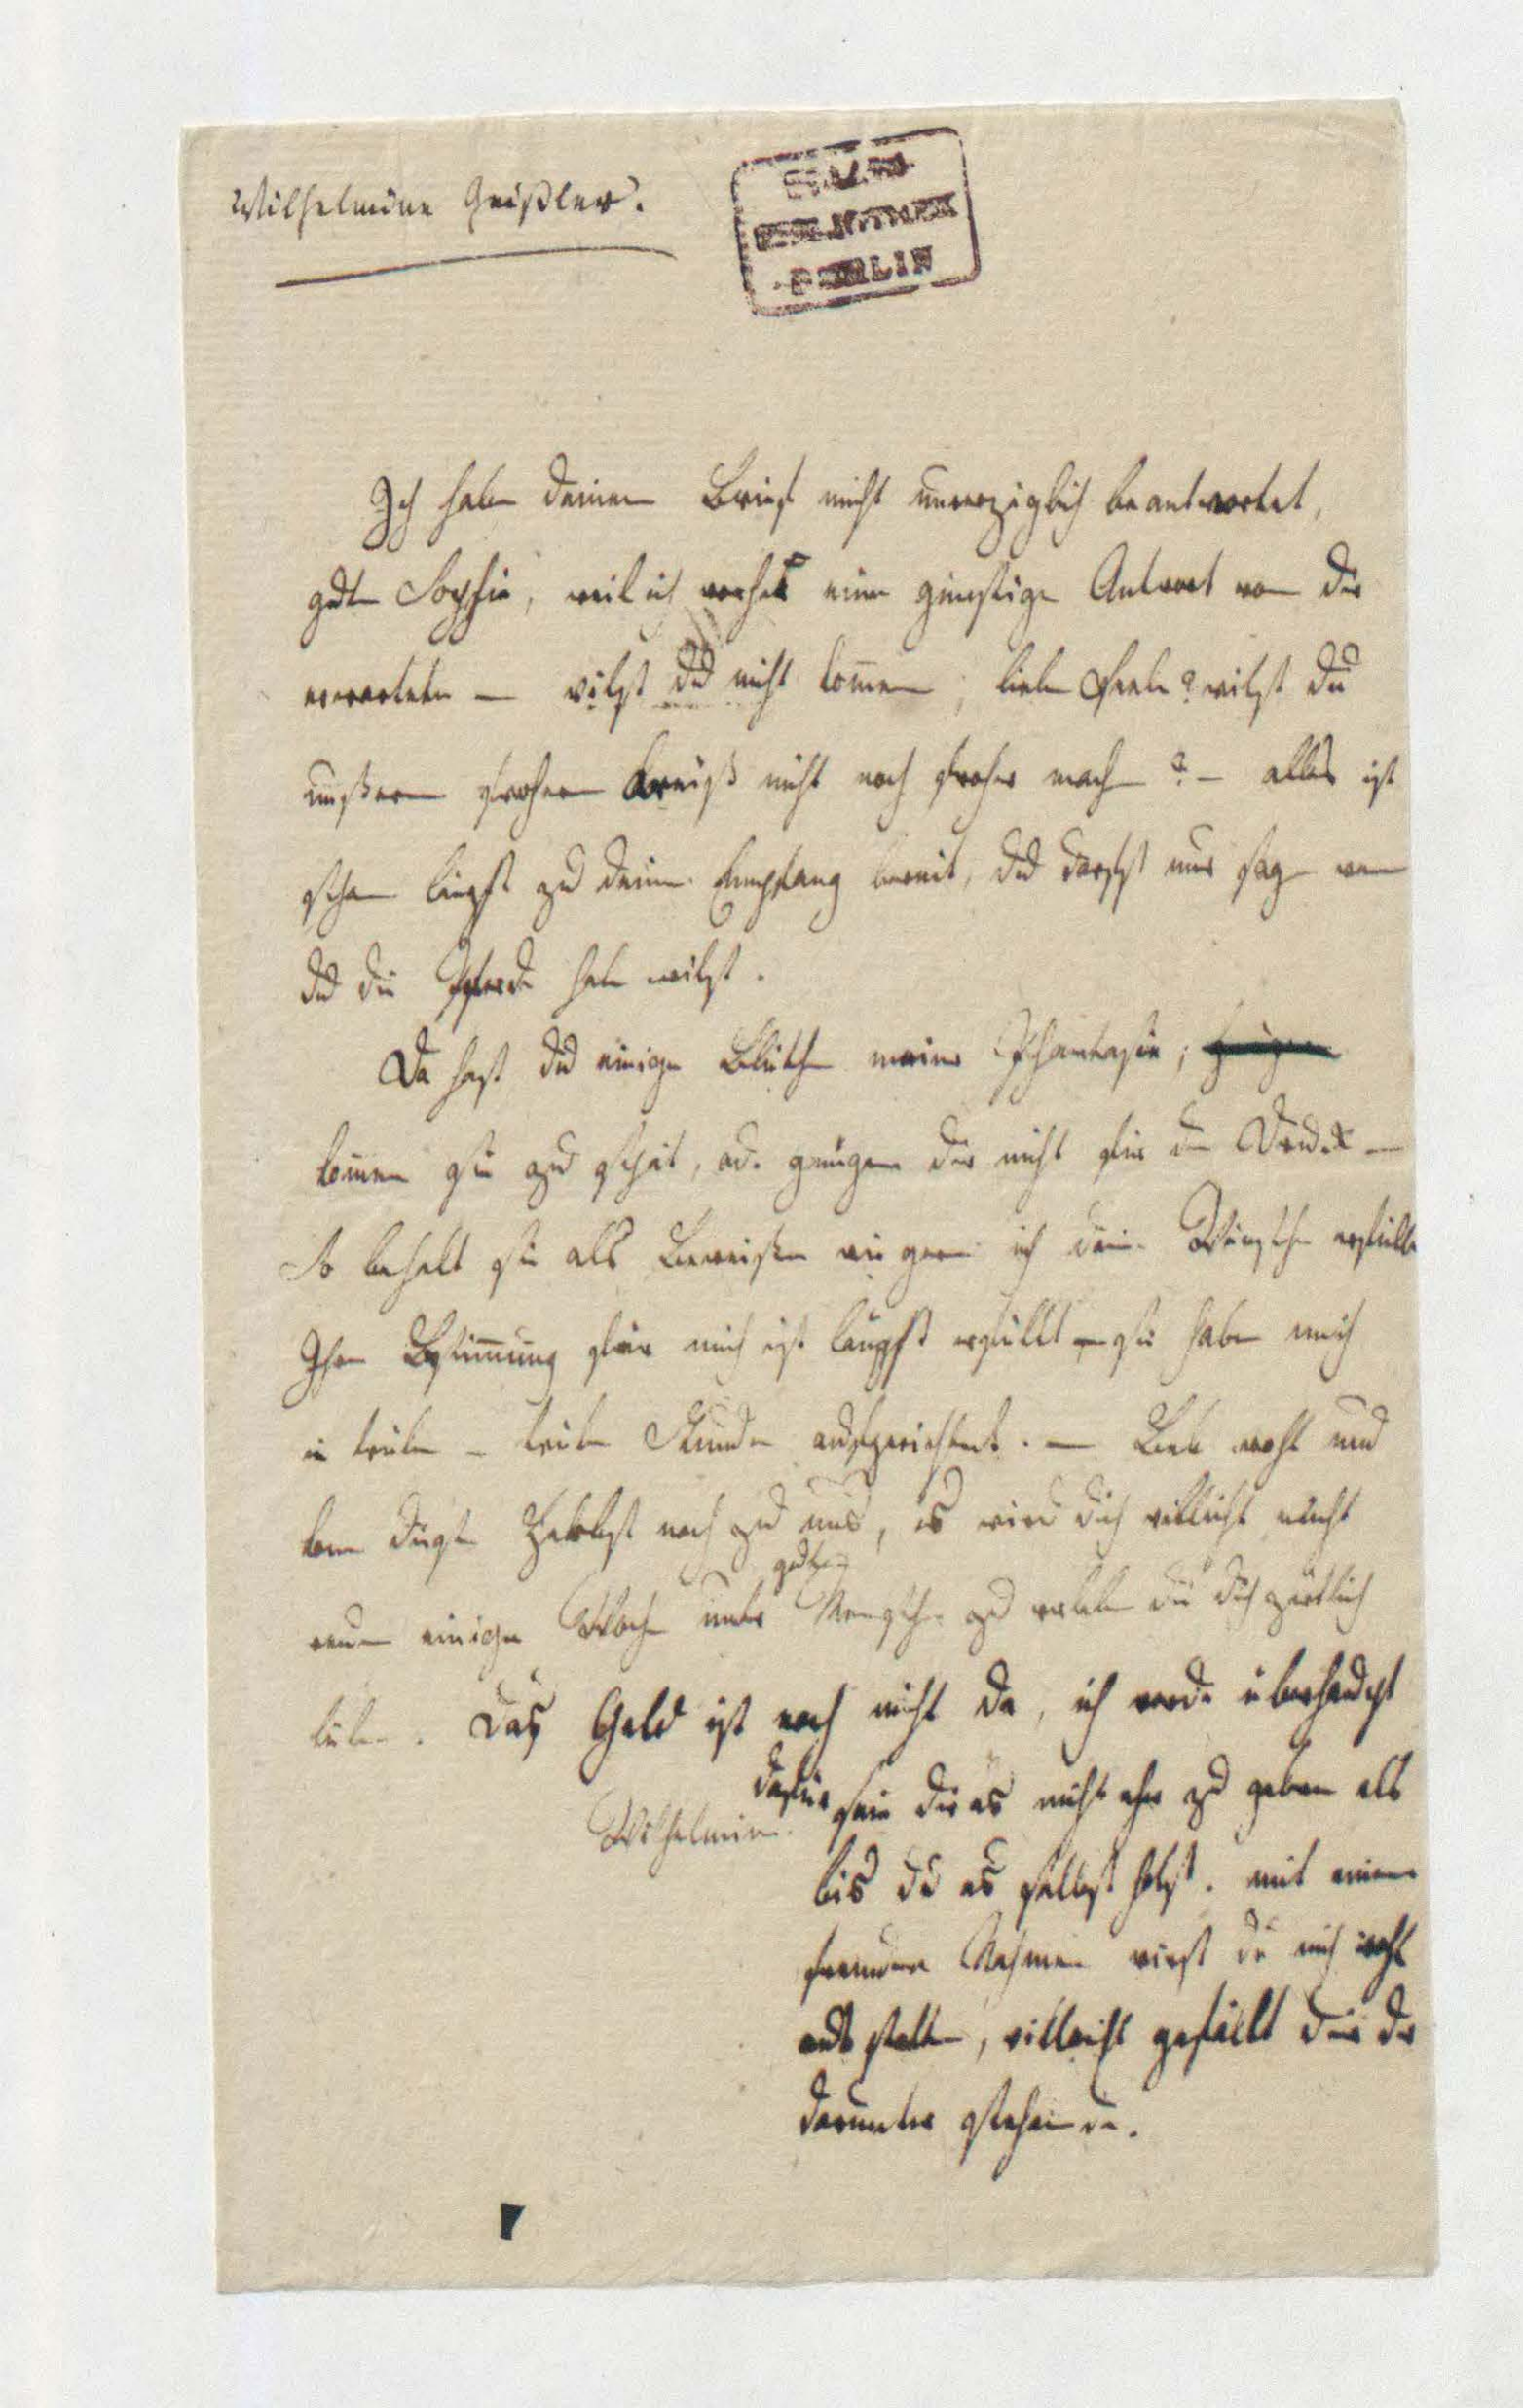 Wilhelmine Geißler.
BERLIN
Ich habe deinen Brief nicht unverzüglich beantwortet,
gute Sophie, weil ich vorher eine günstige Antwort von dir
erwartete — wilst du nicht kommen, liebe Seele? wilst du
unßern frohen Kreiß nicht noch froher machen? — alles ist
schon längst zu deinem Empfang bereit, du darfst nur sagen wenn
du die Pferde haben wilst.
Da hast du einige Blüthen meiner Phantasie;
komen sie zu spät, od. genügen dir nicht für den Druck —
So behalt sie als Beweiße wie gern ich deine Wünsche erfülle
Ihre Bestimmung für mich ist längst erfüllt — sie haben mich
in trüben — trüben Stunden aufgerichtet. — Leb wohl und
kom diesen Herbst noch zu uns, es wird dich villeicht nicht
reuen einige Wochen unter guten Menschen zu verleben die dich zärtlich
lieben. Das Geld ist noch nicht da, ich werde überhaupt
Wilhelmine.
dafür sein dir es nicht eher zu geben als
bis du es selbst holst. mit einem
fremden Nahmen wirst du mich wohl
ausstatten, villeicht gefällt dir der
darunter stehende.